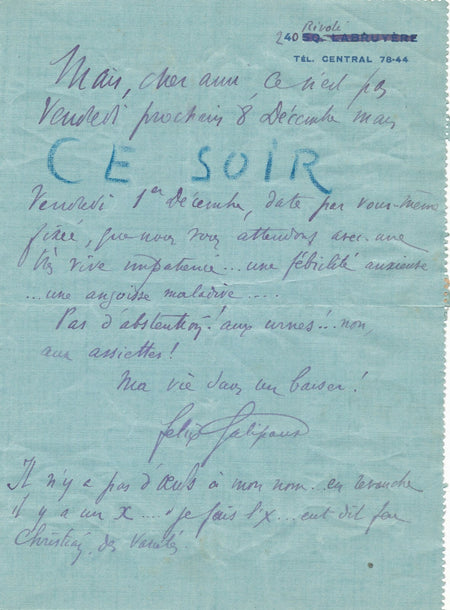 Rivoli
240 50, LABRUYÈRE
TÉL. CENTRAL 78-44
Mais, cher ami, ce n'est pas
Vendredi prochain 8 Décembre mais
CE SOIR
Vendredi 1er Décembre, date par vous-même
fixée, que nous vous attendons avec une
très vive impatience... une fébrilité anxieuse
... une angoisse maladive .....
Pas d'abstention! aux urnes!.. non,
aux assiettes!
Ma vie dans un baiser!
Felix Galipaux
Il n'y a pas d' à mon nom... en revanche
il y a un x.... "je fais l'x... eut dit feu
Christian, des Variétés.